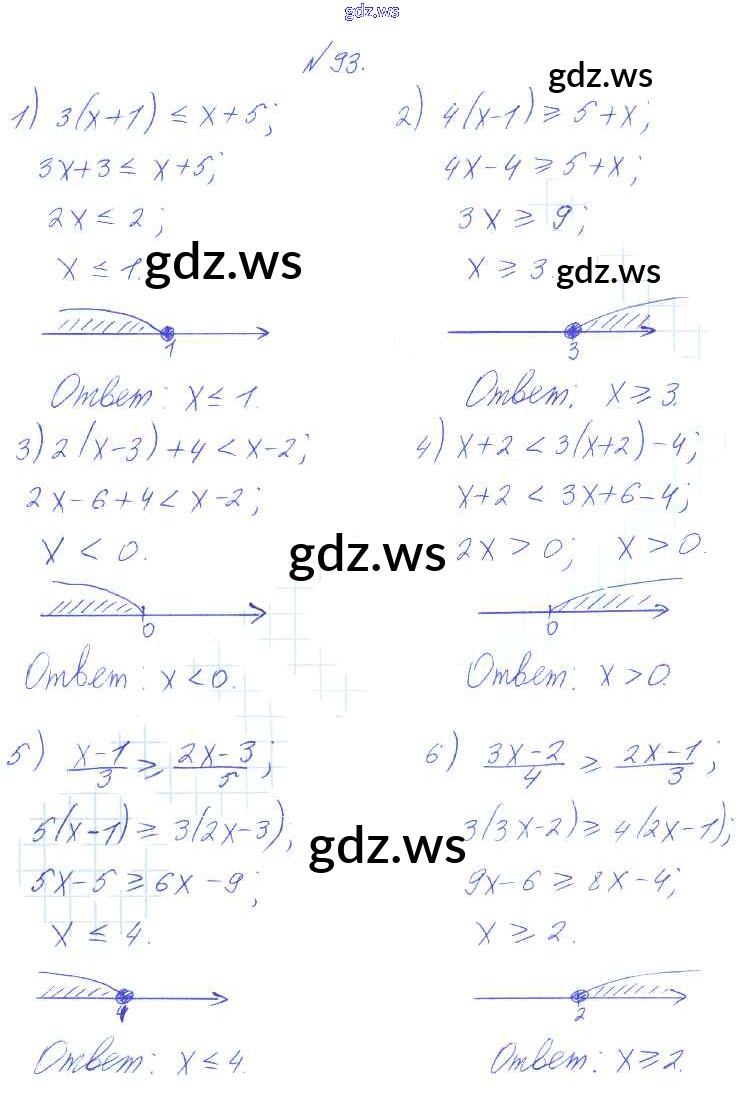 gdz.ws
№ 93.
1) 3(x+1) ≤ x+5;
3x+3 ≤ x+5;
2x ≤ 2;
x ≤ 1.
1
Ответ: x ≤ 1.
gdz.ws
2) 4(x-1) ≥ 5+x;
4x-4 ≥ 5+x;
3x ≥ 9;
x ≥ 3.
3
Ответ: x ≥ 3.
gdz.ws
gdz.ws
3) 2(x-3)+4 < x-2;
2x-6+4 < x-2;
x < 0.
0
Ответ: x < 0.
gdz.ws
4) x+2 < 3(x+2)-4;
x+2 < 3x+6-4;
2x > 0; x > 0.
0
Ответ: x > 0.
5) (x-1)/3 ≥ (2x-3)/5;
5(x-1) ≥ 3(2x-3);
5x-5 ≥ 6x-9;
x ≤ 4.
4
Ответ: x ≤ 4.
gdz.ws
6) (3x-2)/4 ≥ (2x-1)/3;
3(3x-2) ≥ 4(2x-1);
9x-6 ≥ 8x-4;
x ≥ 2.
2
Ответ: x ≥ 2.